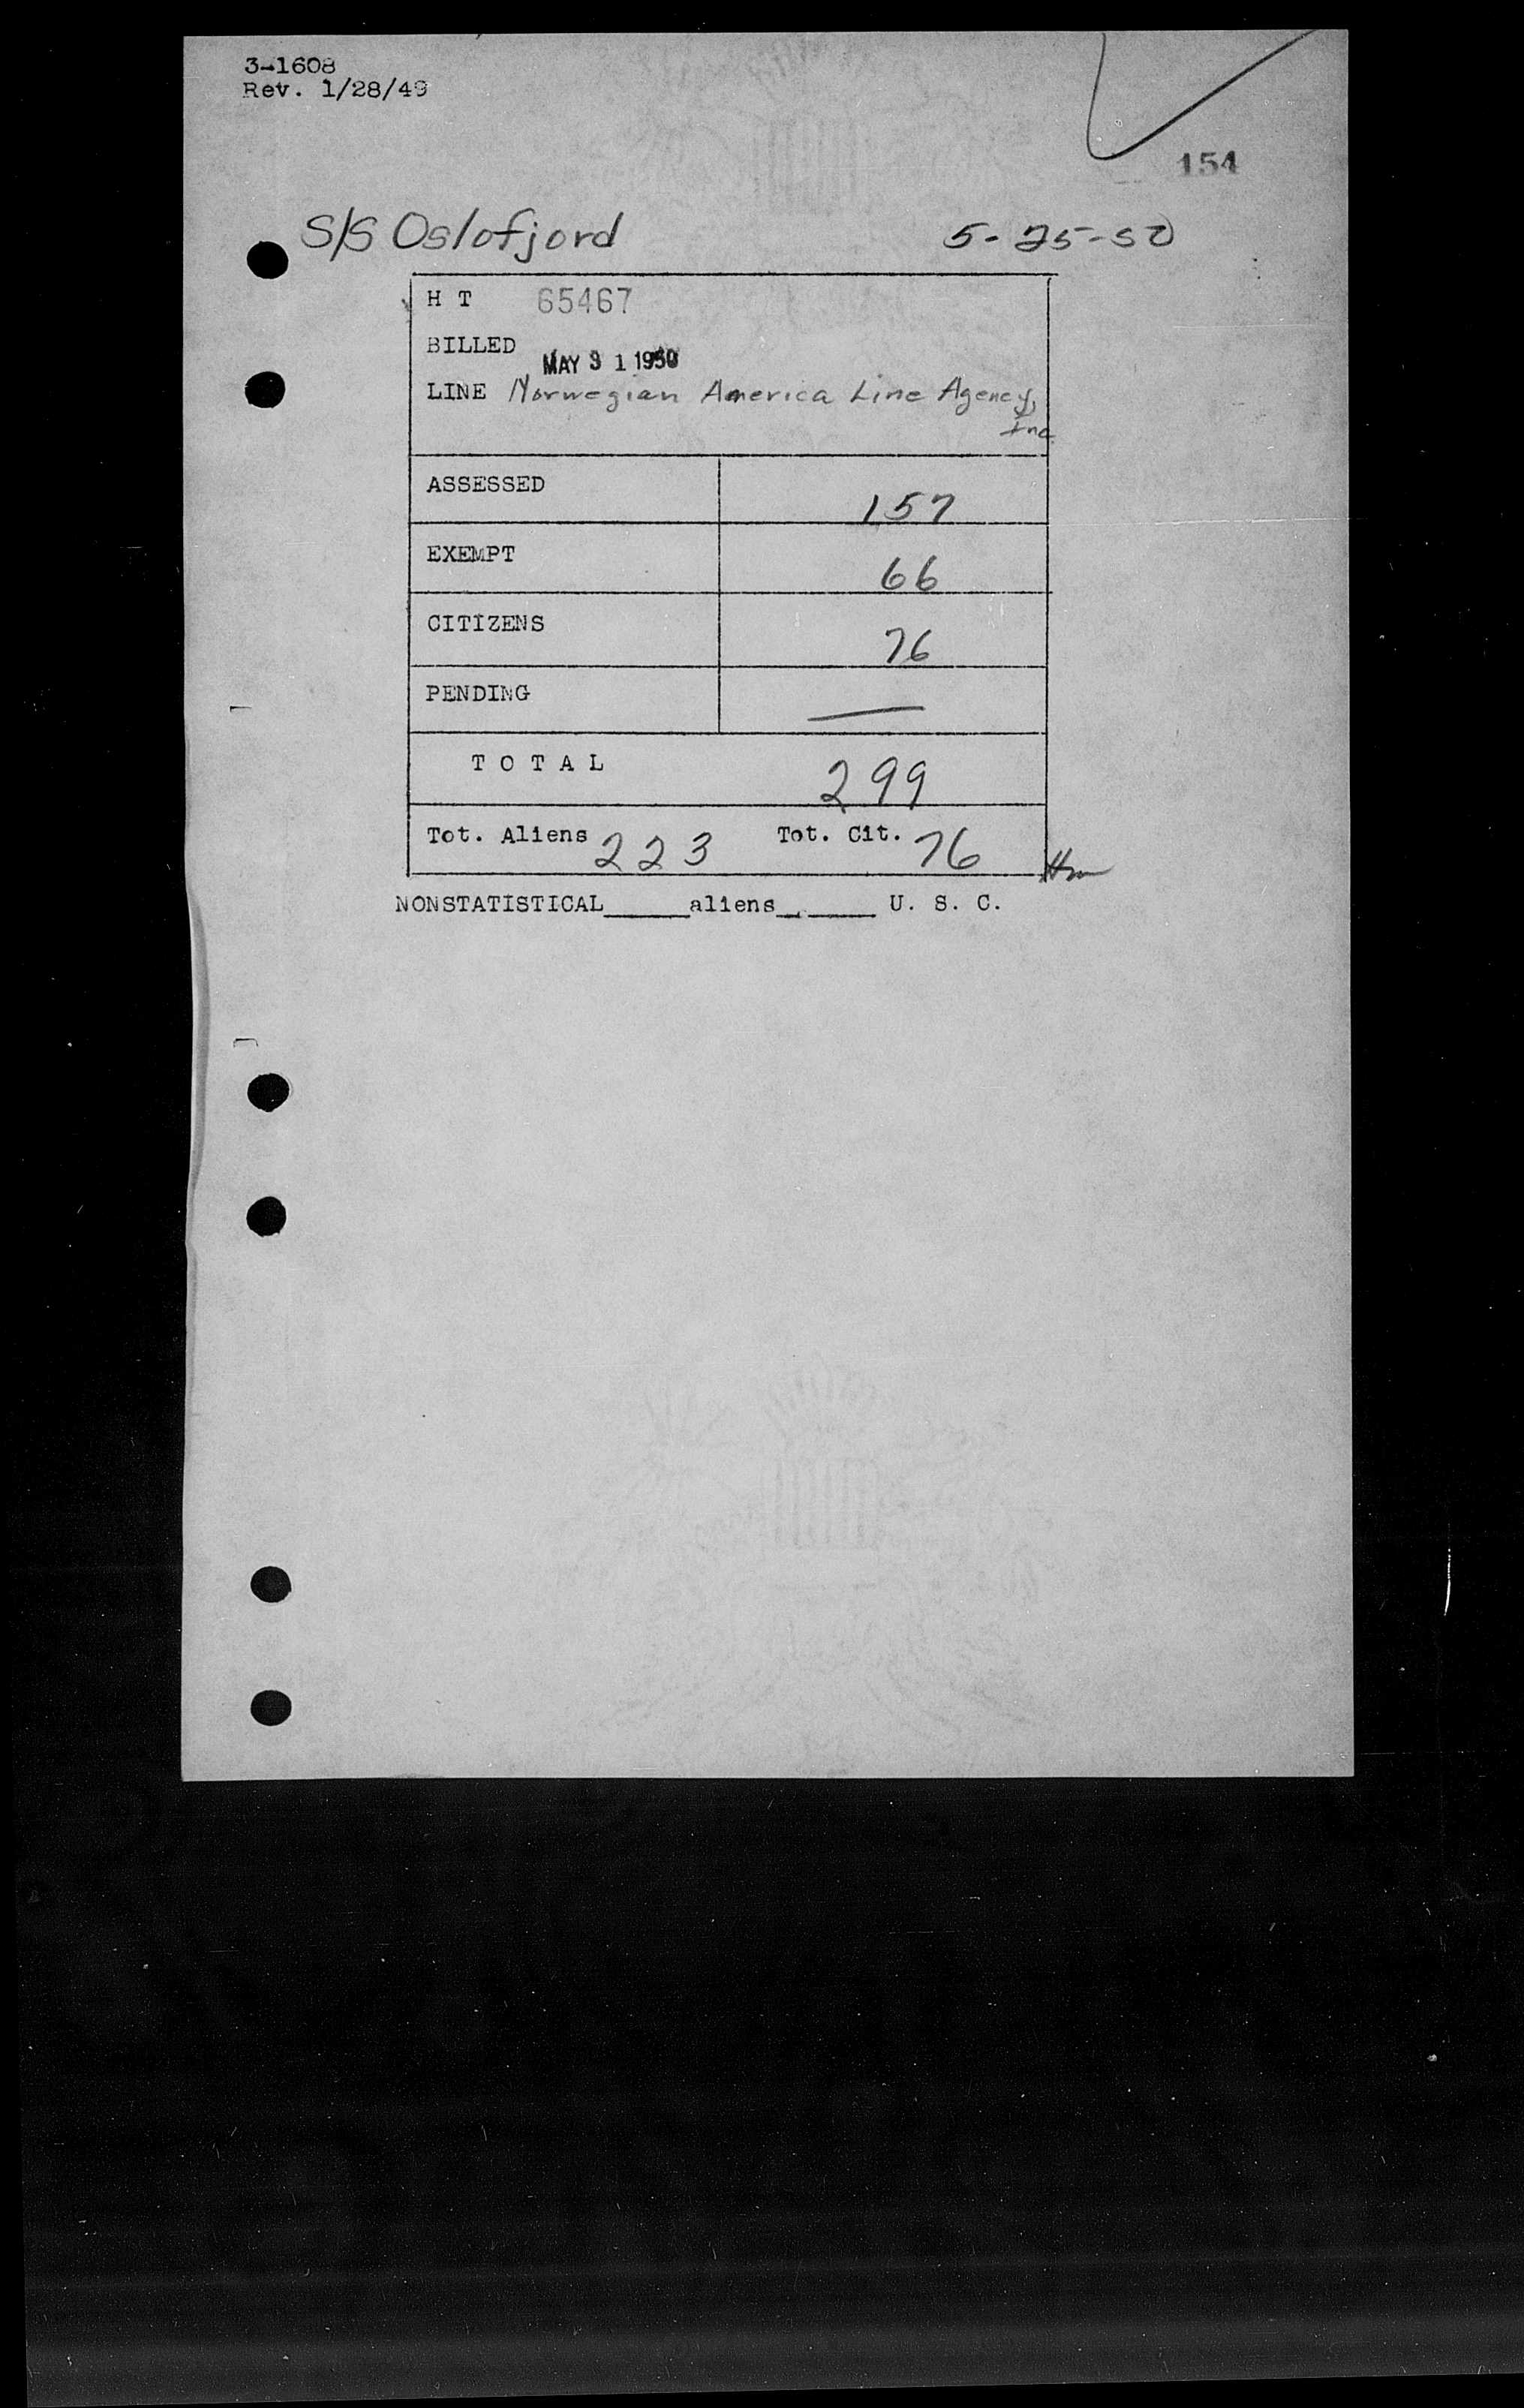 3-1608
Rev. 1/28/49
154
S/S Oslofjord 5-25-50
H T 65467
BILLED
MAY 31 1950
LINE Norwegian America Line Agency,
Inc.
ASSESSED 157
EXEMPT 66
CITIZENS 76
PENDING —
T O T A L 299
Tot. Aliens 223 Tot. Cit. 76
NONSTATISTICAL_____aliens__ ____ U. S. C.